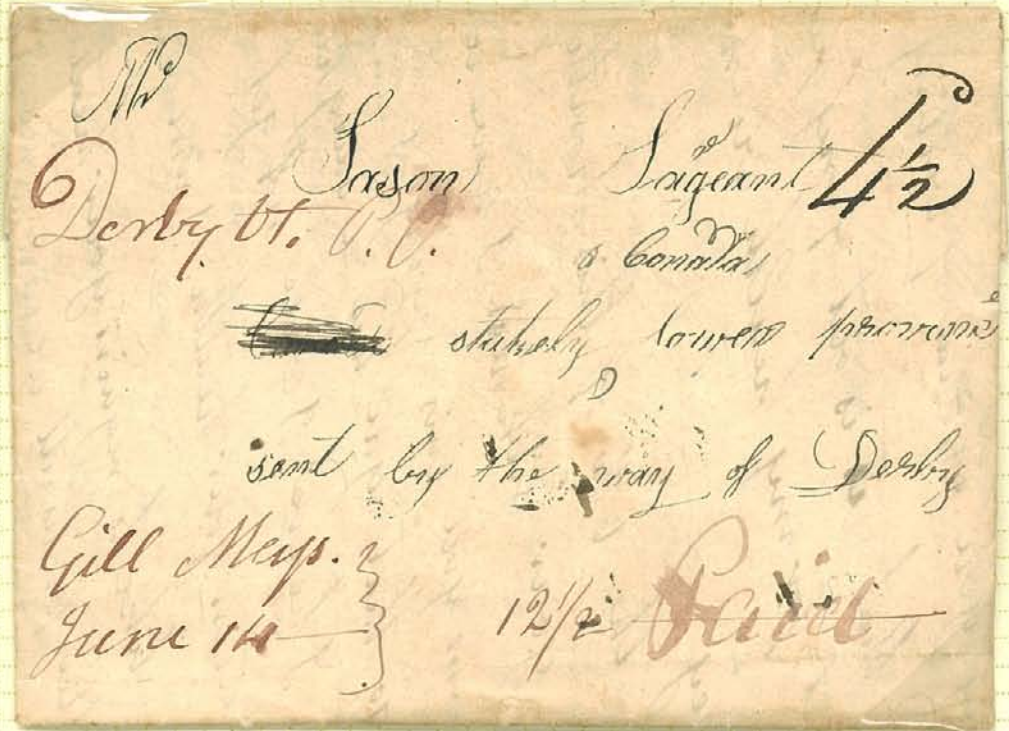 Mr
Jason Sageant 4½
6
Derby Vt.
Canada
stukely lower provinc
sent by the way of Derby
Gill Mass.
June 14
12½ Paid